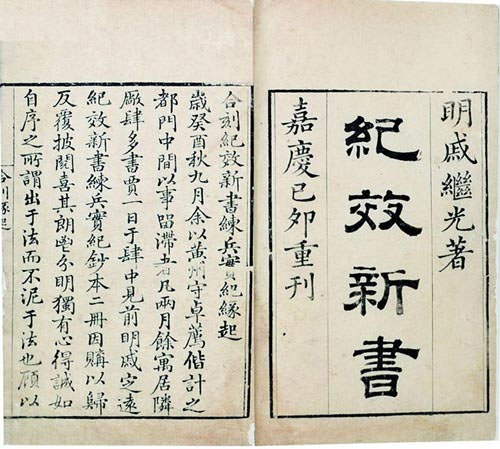 明戚繼光著
紀效新書
嘉慶己夘重刊
合刻紀效新書練兵實紀緣起
歲癸酉秋九月余以黃州守卓薦偕計之
都門中間以事畱滯者凡兩月餘寓居隣
厰肆多書賈一日于肆中見前明戚定遠
紀效新書練兵實紀鈔本二冊因購以歸
反覆披閱喜其朗鬯分明獨有心得誠如
自序之所謂出于法而不泥于法也顧以
緣起